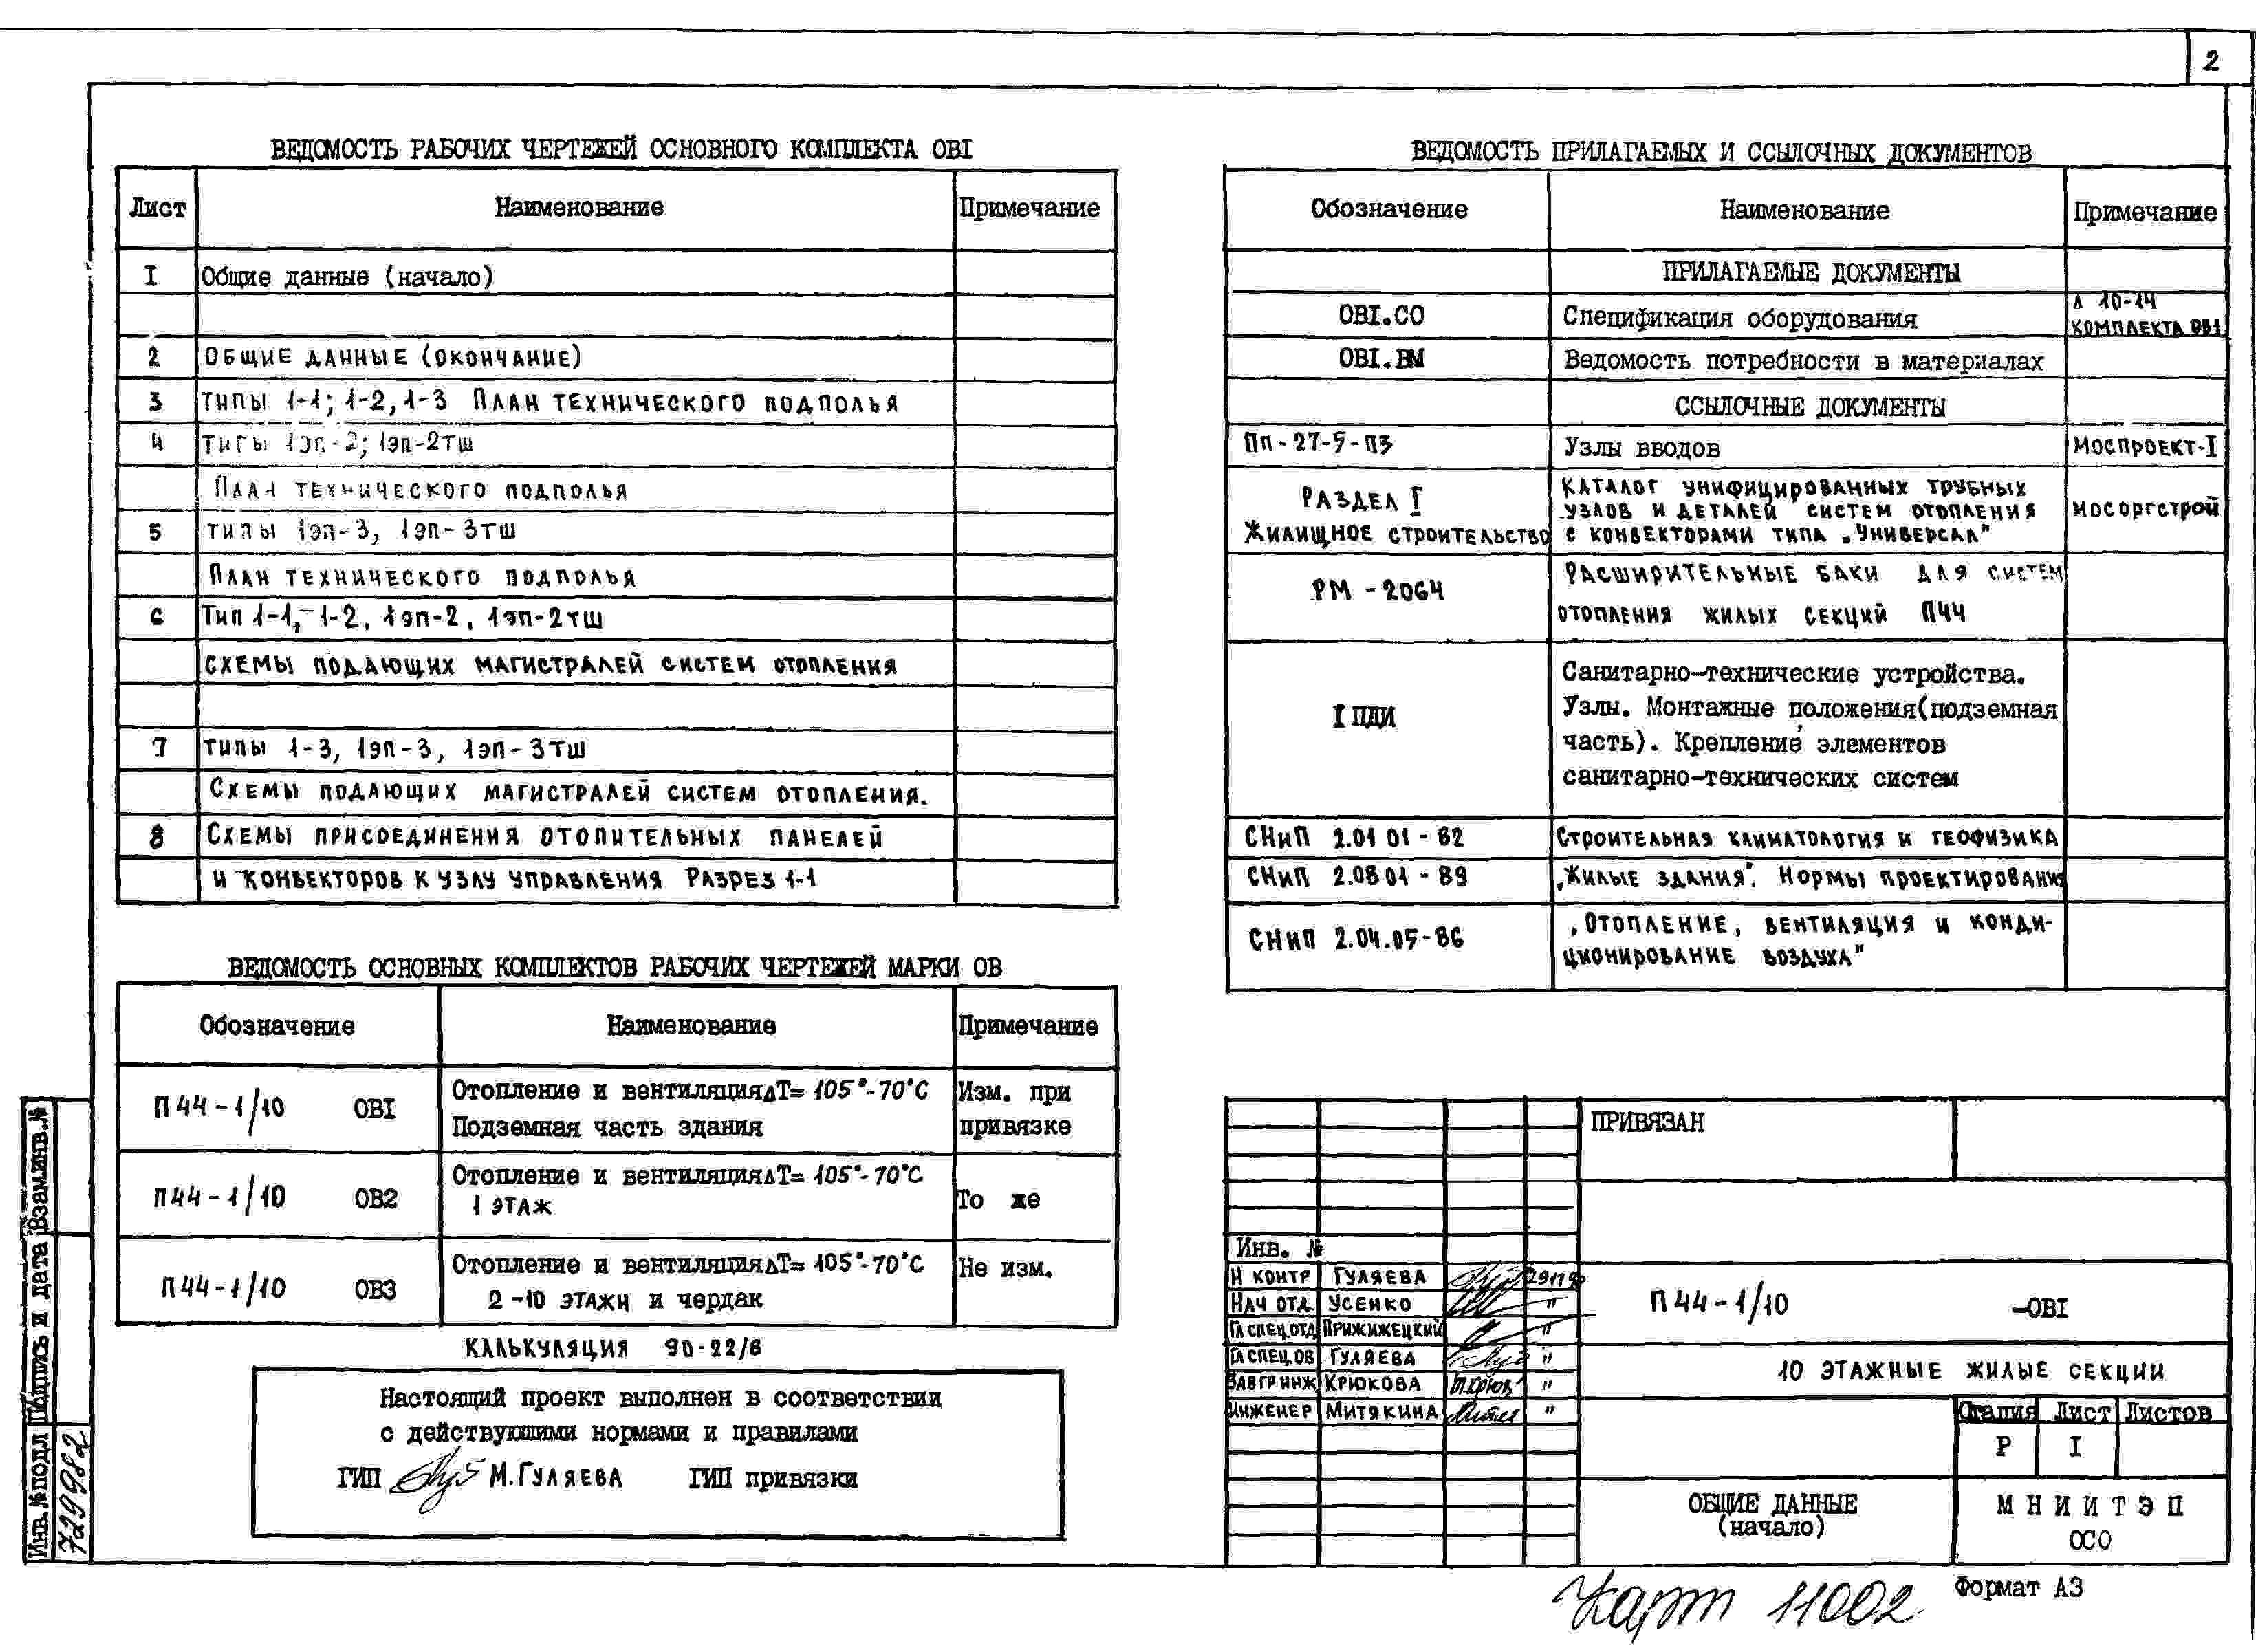 2
ВЕДОМОСТЬ РАБОЧИХ ЧЕРТЕЖЕЙ ОСНОВНОГО КОМПЛЕКТА ОВI
Лист Наименование Примечание
I Общие данные (начало)
2 ОБЩИЕ ДАННЫЕ (ОКОНЧАНИЕ)
3 ТИПЫ 1-1; 1-2, 1-3 ПЛАН ТЕХНИЧЕСКОГО ПОДПОЛЬЯ
4 ТИПЫ 1ЭП-2; 1ЭП-2ТШ
ПЛАН ТЕХНИЧЕСКОГО ПОДПОЛЬЯ
5 ТИПЫ 1ЭП-3, 1ЭП-3ТШ
ПЛАН ТЕХНИЧЕСКОГО ПОДПОЛЬЯ
6 ТИП 1-1, 1-2, 1ЭП-2, 1ЭП-2ТШ
СХЕМЫ ПОДАЮЩИХ МАГИСТРАЛЕЙ СИСТЕМ ОТОПЛЕНИЯ
7 ТИПЫ 1-3, 1ЭП-3, 1ЭП-3ТШ
СХЕМЫ ПОДАЮЩИХ МАГИСТРАЛЕЙ СИСТЕМ ОТОПЛЕНИЯ.
8 СХЕМЫ ПРИСОЕДИНЕНИЯ ОТОПИТЕЛЬНЫХ ПАНЕЛЕЙ
И КОНВЕКТОРОВ К УЗЛУ УПРАВЛЕНИЯ РАЗРЕЗ 1-1
ВЕДОМОСТЬ ОСНОВНЫХ КОМПЛЕКТОВ РАБОЧИХ ЧЕРТЕЖЕЙ МАРКИ ОВ
Обозначение Наименование Примечание
П44-1/10 ОВI Отопление и вентиляция ΔТ= 105°-70°С Изм. при
Подземная часть здания привязке
П44-1/10 ОВ2 Отопление и вентиляция ΔТ= 105°-70°С То же
1 ЭТАЖ
П44-1/10 ОВ3 Отопление и вентиляция ΔТ= 105°-70°С Не изм.
2-10 ЭТАЖИ и чердак
КАЛЬКУЛЯЦИЯ 90-22/6
Настоящий проект выполнен в соответствии
с действующими нормами и правилами
ГИП М. ГУЛЯЕВА ГИП привязки
ВЕДОМОСТЬ ПРИЛАГАЕМЫХ И ССЫЛОЧНЫХ ДОКУМЕНТОВ
Обозначение Наименование Примечание
ПРИЛАГАЕМЫЕ ДОКУМЕНТЫ
ОВI.СО Спецификация оборудования Л 10-14 КОМПЛЕКТА ОВ1
ОВI.ВМ Ведомость потребности в материалах
ССЫЛОЧНЫЕ ДОКУМЕНТЫ
ПП-27-5-П3 Узлы вводов МОСПРОЕКТ-I
РАЗДЕЛ I КАТАЛОГ УНИФИЦИРОВАННЫХ ТРУБНЫХ
УЗЛОВ И ДЕТАЛЕЙ СИСТЕМ ОТОПЛЕНИЯ МОСОРГСТРОЙ
ЖИЛИЩНОЕ СТРОИТЕЛЬСТВО С КОНВЕКТОРАМИ ТИПА „УНИВЕРСАЛ"
РМ - 2064 РАСШИРИТЕЛЬНЫЕ БАКИ ДЛЯ СИСТЕМ
ОТОПЛЕНИЯ ЖИЛЫХ СЕКЦИЙ П44
I ПДИ Санитарно-технические устройства.
Узлы. Монтажные положения(подземная
часть). Крепление элементов
санитарно-технических систем
СНиП 2.01 01 - 82 СТРОИТЕЛЬНАЯ КЛИМАТОЛОГИЯ И ГЕОФИЗИКА
СНиП 2.08 01 - 89 „ЖИЛЫЕ ЗДАНИЯ". НОРМЫ ПРОЕКТИРОВАНИЯ
СНиП 2.04.05-86 „ОТОПЛЕНИЕ, ВЕНТИЛЯЦИЯ И КОНДИ-
ЦИОНИРОВАНИЕ ВОЗДУХА"
ПРИВЯЗАН
Инв. №
Н КОНТР ГУЛЯЕВА
НАЧ ОТД. УСЕНКО "
ГЛ СПЕЦ.ОТД ПРИЖИЖЕЦКИЙ "
ГЛ СПЕЦ.ОВ ГУЛЯЕВА "
ЗАВ ГР ИНЖ КРЮКОВА "
ИНЖЕНЕР МИТЯКИНА "
П44-1/10 -ОВI
10 ЭТАЖНЫЕ ЖИЛЫЕ СЕКЦИИ
Стадия Лист Листов
Р I
ОБЩИЕ ДАННЫЕ
(начало)
МНИИТЭП
ОСО
Формат А3
Карт 11002
Взам.инв.№
Подпись и дата
Инв.№подл
729982